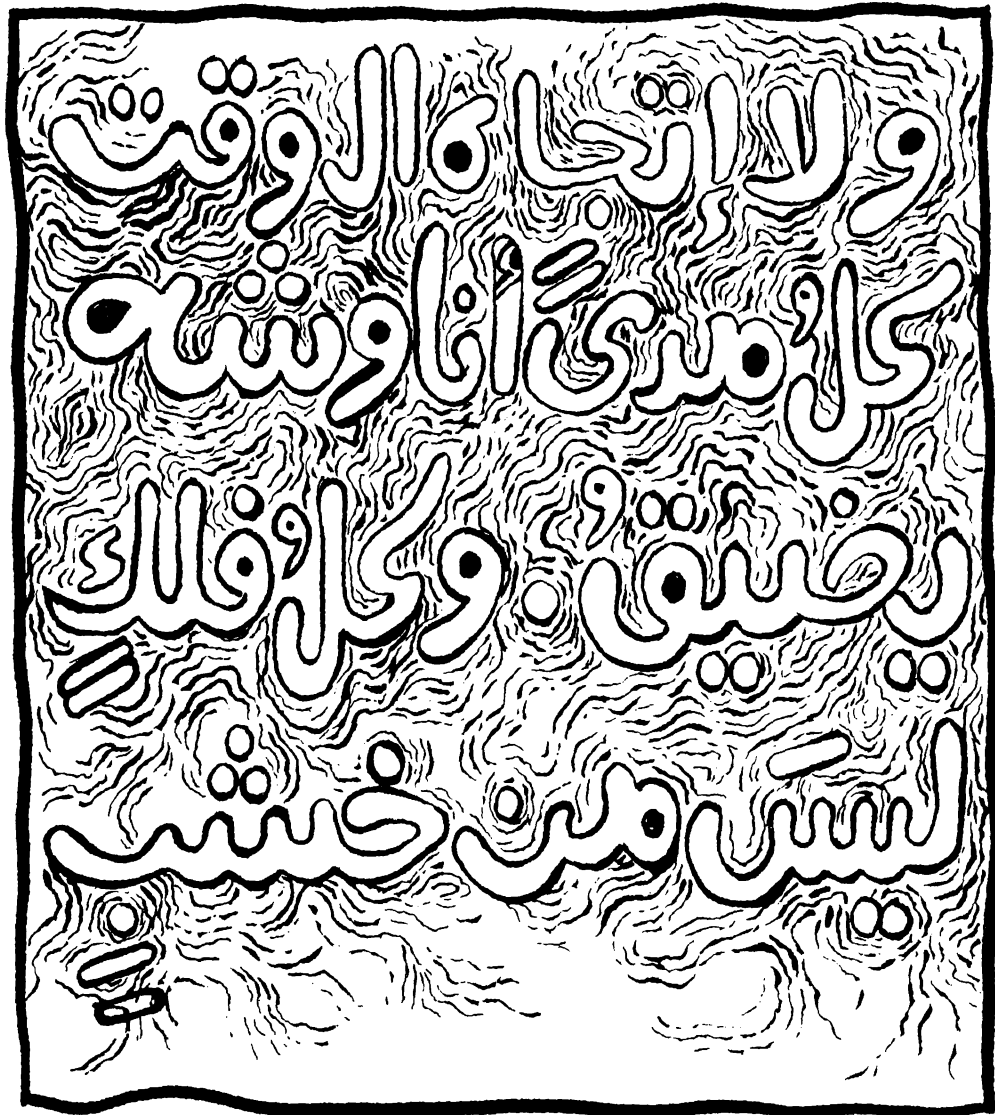 ولا اتجاه الوقت
كلُ مدىً أناوشه
يضيقُ، وكلُ فلكٍ
ليسَ من خشبٍ